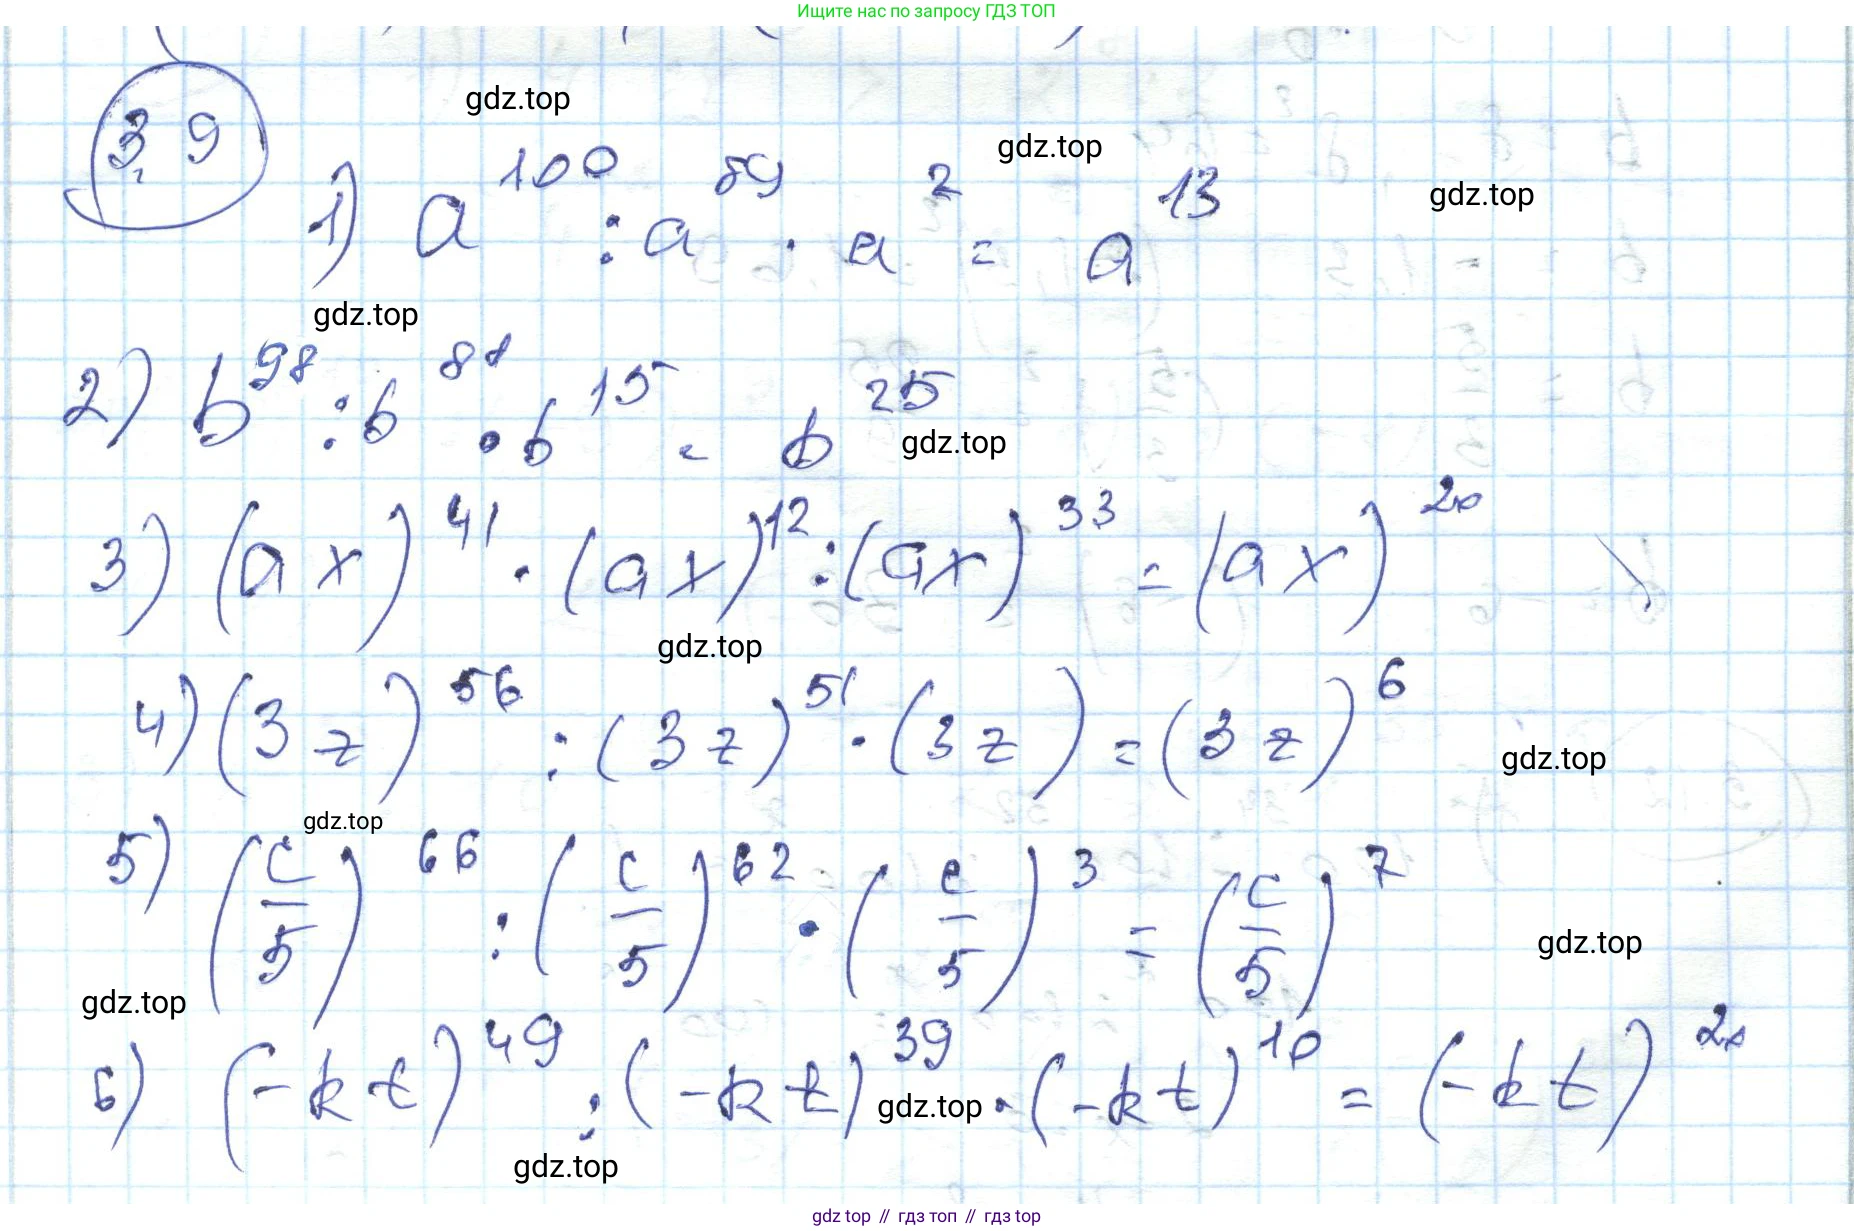 Ищите нас по запросу ГДЗ ТОП
3.9
gdz.top
gdz.top
gdz.top
1) a^100 : a^89 · a^2 = a^13
gdz.top
2) b^98 : b^88 · b^15 = b^25
gdz.top
3) (ax)^41 · (ax)^12 : (ax)^33 = (ax)^20
gdz.top
4) (3z)^56 : (3z)^51 · (3z) = (3z)^6
gdz.top
gdz.top
5) (c/5)^66 : (c/5)^62 · (c/5)^3 = (c/5)^7
gdz.top
gdz.top
6) (-kt)^49 : (-kt)^39 · (-kt)^10 = (-kt)^20
gdz.top
gdz.top
gdz.top // гдз топ // гдз top